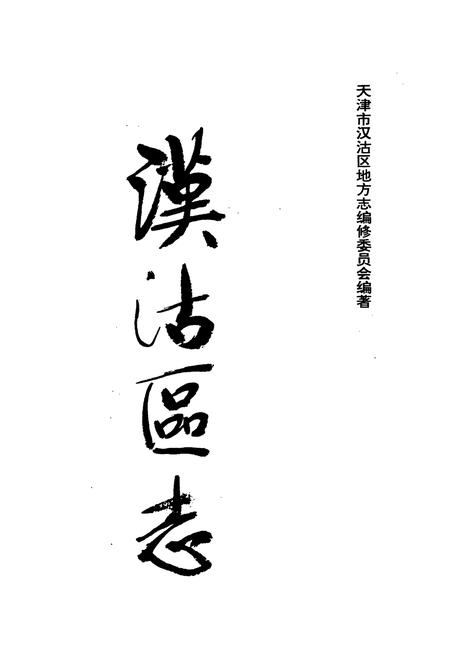 天津市汉沽区地方志编修委员会编著
漢沽區志